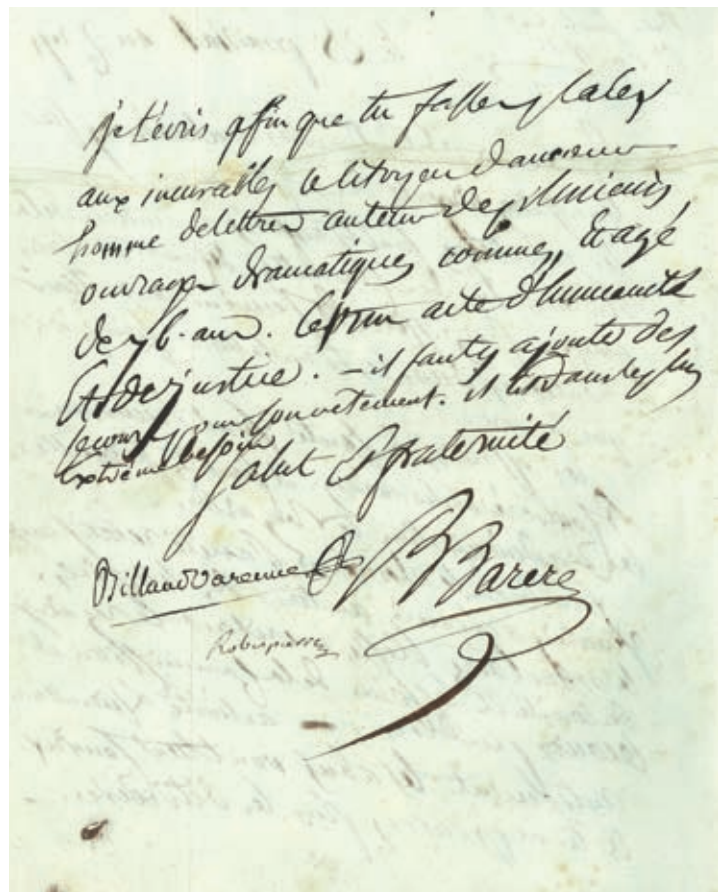 je t'écris afin que tu fasses placer
aux incurables le citoyen
homme de lettres auteur de plusieurs
ouvrages dramatiques connus, et agé
de 76. ans. C'est un acte d'humanité
Et de justice. - il faut y ajouter des
secours pour son vetement. il est dans le plus
Extrême besoin
salut et fraternité
Billaud varenne B Barere
Robespierre